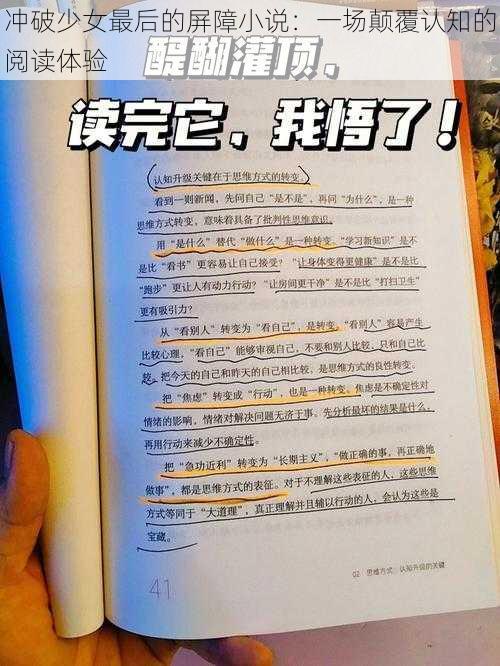 冲破少女最后的屏障小说：一场颠覆认知的
阅读体验
醍醐灌顶，
读完它，我悟了！
认知升级关键在于思维方式的转变。
看到一则新闻，先问自己“是不是”，再问“为什么”，是一种
思维方式转变，意味着具备了批判性思维意识。
用“是什么”替代“做什么”是一种转变。“学习新知识”是不
是比“看书”更容易让自己接受？“让身体变得更健康”是不是比
“跑步”更让人有动力行动？“让房间更干净”是不是比“打扫卫生”
更有吸引力？
从“看别人”转变为“看自己”，是转变。“看别人”容易产生
比较心理，“看自己”能够审视自己，不要和别人比较，只和自己比
较。把今天的自己和昨天的自己相比较，是思维方式的良性转变。
把“焦虑”转变成“行动”，也是一种转变。焦虑是不确定性对
情绪的影响，情绪对解决问题无济于事，先分析最坏的结果是什么，
再用行动来减少不确定性。
把“急功近利”转变为“长期主义”，“做正确的事，再正确地
做事”，都是思维方式的表征。对于不理解这些表征的人，这些思维
方式等同于“大道理”，真正理解并且辅以行动的人，会认为这些是
宝藏。
02 思维方式：认知升级的关键
41